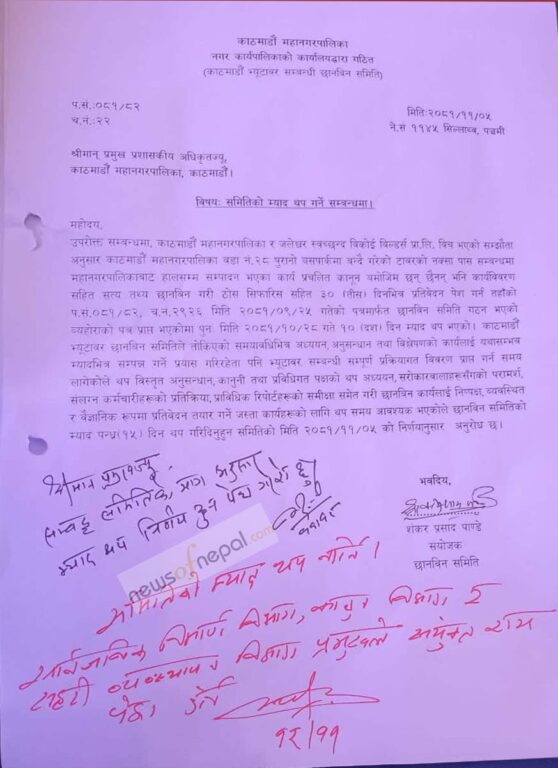 काठमाडौं महानगरपालिका
नगर कार्यपालिकाको कार्यालयद्वारा गठित
(काठमाडौं भ्यूटावर सम्बन्धी छानविन समिति)
प.सं.:०८१/८२
मिति:२०८१/११/०५
च.नं.:२२
ने.सं ११४५ सिल्लाथ्व, पञ्चमी
श्रीमान् प्रमुख प्रशासकीय अधिकृतज्यू,
काठमाडौं महानगरपालिका, काठमाडौं।
विषय: समितिको म्याद थप गर्ने सम्बन्धमा।
महोदय,
उपरोक्त सम्बन्धमा, काठमाडौं महानगरपालिका र जलेश्वर स्वच्छन्द विकोई बिल्डर्स प्रा.लि. विच भएको सम्झौता
अनुसार काठमाडौं महानगरपालिका वडा नं.२८ पुरानो बसपार्कमा बन्दै गरेको टावरको नक्सा पास सम्बन्धमा
महानगरपालिकाबाट हालसम्म सम्पादन भएका कार्य प्रचलित कानून बमोजिम छन् छैनन् भनि कार्यविवरण
सहित सत्य तथ्य छानविन गरी ठोस सिफारिस सहित ३० (तीस) दिनभित्र प्रतिवेदन पेश गर्न तहाँको
प.सं.०८१/८२, च.नं.२९२६ मिति २०८१/०९/२५ गतेको पत्रमार्फत छानविन समिति गठन भएको
व्यहोराको पत्र प्राप्त भएकोमा पुन: मिति २०८१/१०/२८ गते १० (दश) दिन म्याद थप भएको। काठमाडौं
भ्यूटावर छानविन समितिले तोकिएको समयावधिभित्र अध्ययन,अनुसन्धान तथा विश्लेषणको कार्यलाई यथासम्भव
म्यादभित्र सम्पन्न गर्ने प्रयास गरिरहेता पनि भ्यूटावर सम्बन्धी सम्पूर्ण प्रक्रियागत विवरण प्राप्त गर्न समय
लागेकोले थप विस्तृत अनुसन्धान,कानुनी तथा प्रविधिगत पक्षको थप अध्ययन, सरोकारवालाहरूसँगको परामर्श,
संलग्न कर्मचारीहरूको प्रतिक्रिया,प्राविधिक रिपोर्टहरूको समीक्षा समेत गरी छानविन कार्यलाई निष्पक्ष, व्यवस्थित
र वैज्ञानिक रूपमा प्रतिवेदन तयार गर्ने जस्ता कार्यहरूको लागि थप समय आवश्यक भएकोले छानविन समितिको
म्याद पन्ध्र(१५) दिन थप गरिदिनुहुन समितिको मिति २०८१/११/०५ को निर्णयानुसार अनुरोध छ।
भवदिय,
शंकर प्रसाद पाण्डे
संयोजक
छानविन समिति
newsofnepal.com
म्याद थप गर्ने।
१२/११